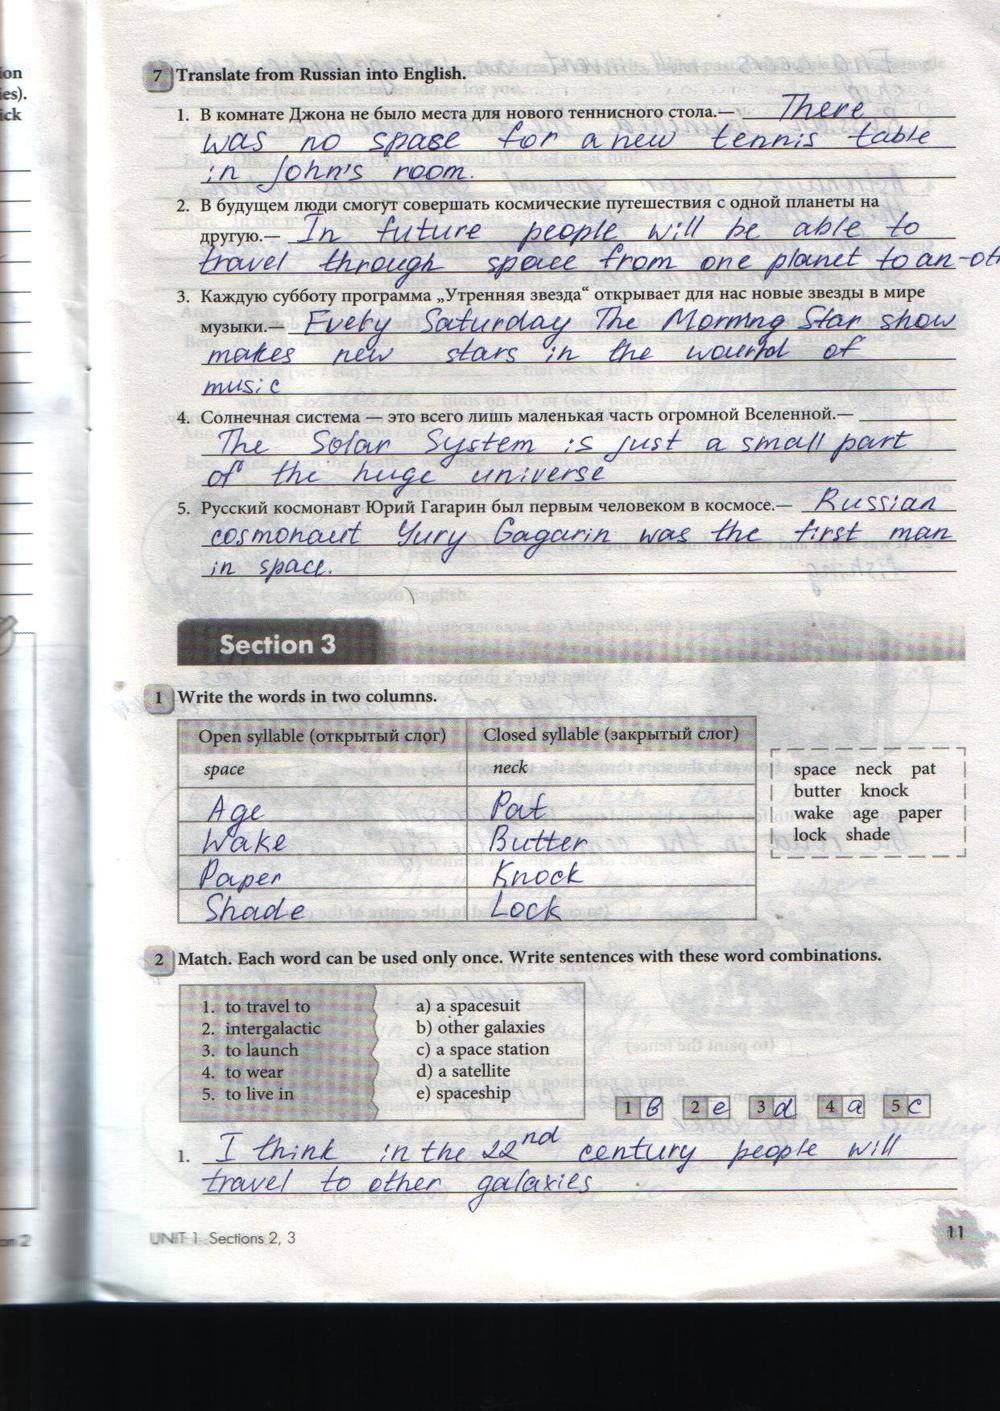 ion
ies).
ick
7 Translate from Russian into English.
1. В комнате Джона не было места для нового теннисного стола.— There
was no space for a new tennis table
in John's room.
2. В будущем люди смогут совершать космические путешествия с одной планеты на
другую.— In future people will be able to
travel through space from one planet to an-oth
3. Каждую субботу программа „Утренняя звезда“ открывает для нас новые звезды в мире
музыки.— Every Saturday The Morning Star show
makes new stars in the wourld of
music
4. Солнечная система — это всего лишь маленькая часть огромной Вселенной.—
The Solar System is just a small part
of the huge universe
5. Русский космонавт Юрий Гагарин был первым человеком в космосе.— Russian
cosmonaut Yury Gagarin was the first man
in space.
Section 3
1 Write the words in two columns.
Open syllable (открытый слог) Closed syllable (закрытый слог)
space neck
Age Pat
Wake Butter
Paper Knock
Shade Lock
space neck pat
butter knock
wake age paper
lock shade
2 Match. Each word can be used only once. Write sentences with these word combinations.
1. to travel to a) a spacesuit
2. intergalactic b) other galaxies
3. to launch c) a space station
4. to wear d) a satellite
5. to live in e) spaceship
1 B 2 e 3 d 4 a 5 c
1. I think in the 22nd century people will
travel to other galaxies
UNIT 1 Sections 2, 3
11